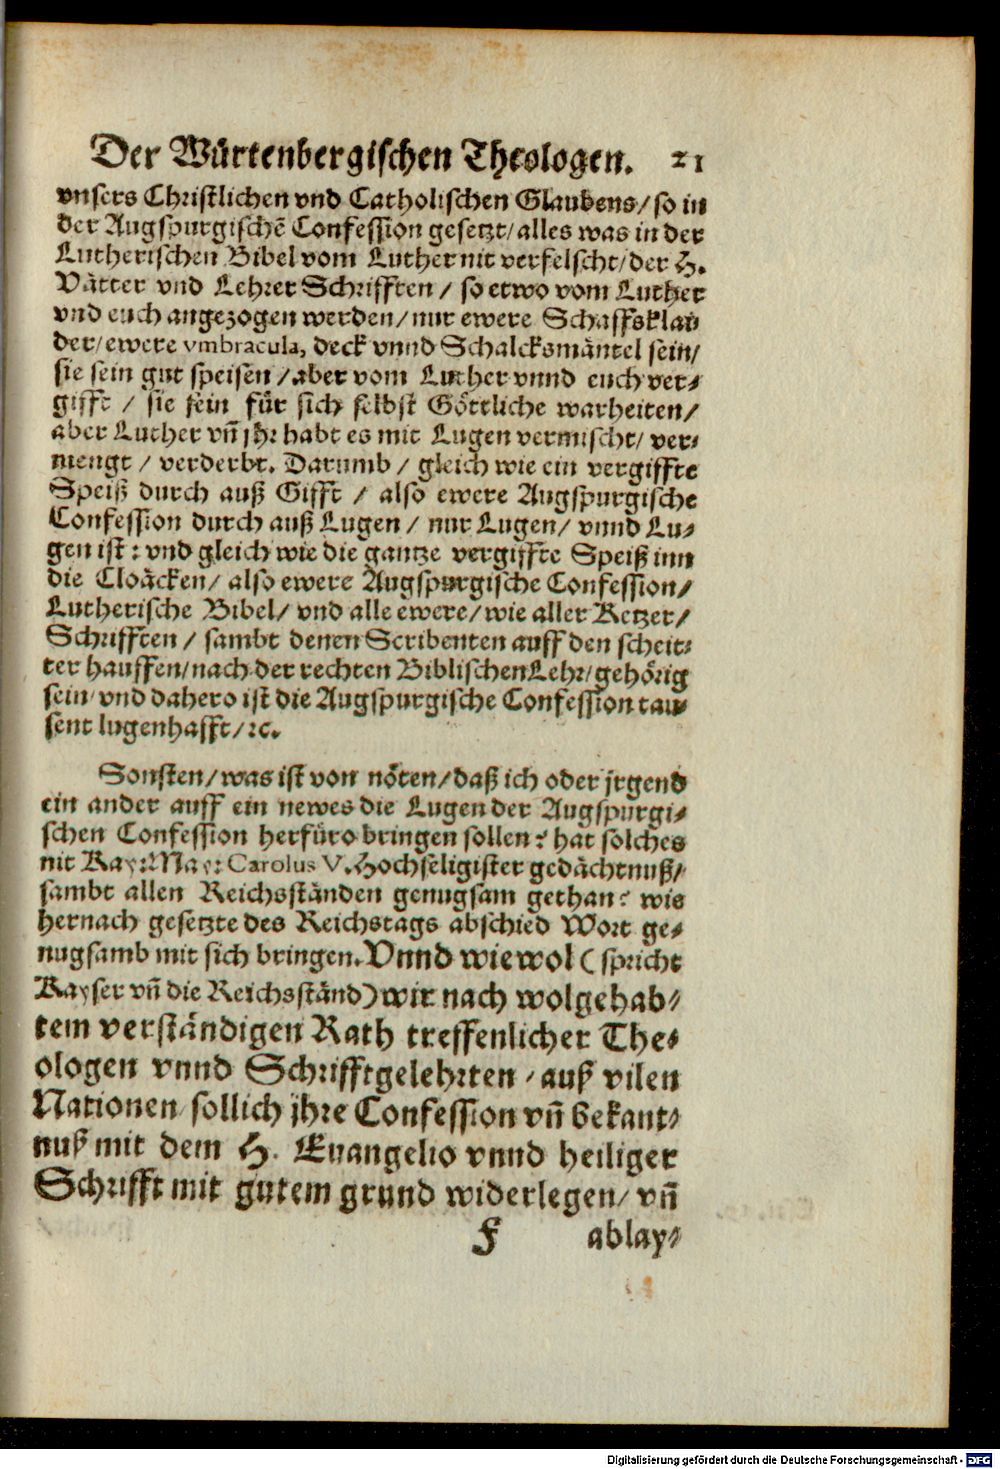 Der Würtenbergischen Theologen. 21
vnsers Christlichen vnd Catholischen Glaubens/ so in
der Augspurgischẽ Confession gesetzt/ alles was in der
Lutherischen Bibel vom Luther nit verfelscht/ der H.
Vätter vnd Lehrer Schrifften / so etwo vom Luther
vnd euch angezogen werden/ nur ewere Schaffsklai
der/ ewere vmbracula, deck vnnd Schalcksmäntel sein/
sie sein gut speisen / aber vom Luther vnnd euch ver-
gifft / sie sein für sich selbst Göttliche warheiten/
aber Luther vñ jhr habt es mit Lugen vermischt/ ver-
mengt / verderbt. Darumb / gleich wie ein vergiffte
Speiß durch auß Gifft / also ewere Augspurgische
Confession durch auß Lugen / nur Lugen/ vnnd Lu-
gen ist: vnd gleich wie die gantze vergiffte Speiß inn
die Cloäcken/ also ewere Augspurgische Confession/
Lutherische Bibel/ vnd alle ewere/ wie aller Ketzer/
Schrifften / sambt denen Scribenten auff den scheit-
ter hauffen/ nach der rechten Biblischen Lehr/ gehörig
sein/ vnd dahero ist die Augspurgische Confession tau-
sent lugenhafft/ ꝛc.
Sonsten/ was ist von nöten/ daß ich oder jrgend
ein ander auff ein newes die Lugen der Augspurgi-
schen Confession herfüro bringen sollen? hat solches
nit Kay: May: Carolus V. Hochseligister gedächtnuß/
sambt allen Reichsständen genugsam gethan? wie
hernach gesetzte des Reichstags abschied Wort ge-
nugsamb mit sich bringen. Vnnd wiewol ( spricht
Kayser vñ die Reichsständ) wir nach wolgehab-
tem verständigen Rath treffenlicher The-
ologen vnnd Schrifftgelehrten / auß vilen
Nationen/ sollich jhre Confession vñ bekant-
nuß mit dem H. Euangelio vnnd heiliger
Schrifft mit gutem grund widerlegen/ vñ
F ablay-
Digitalisierung gefördert durch die Deutsche Forschungsgemeinschaft - DFG